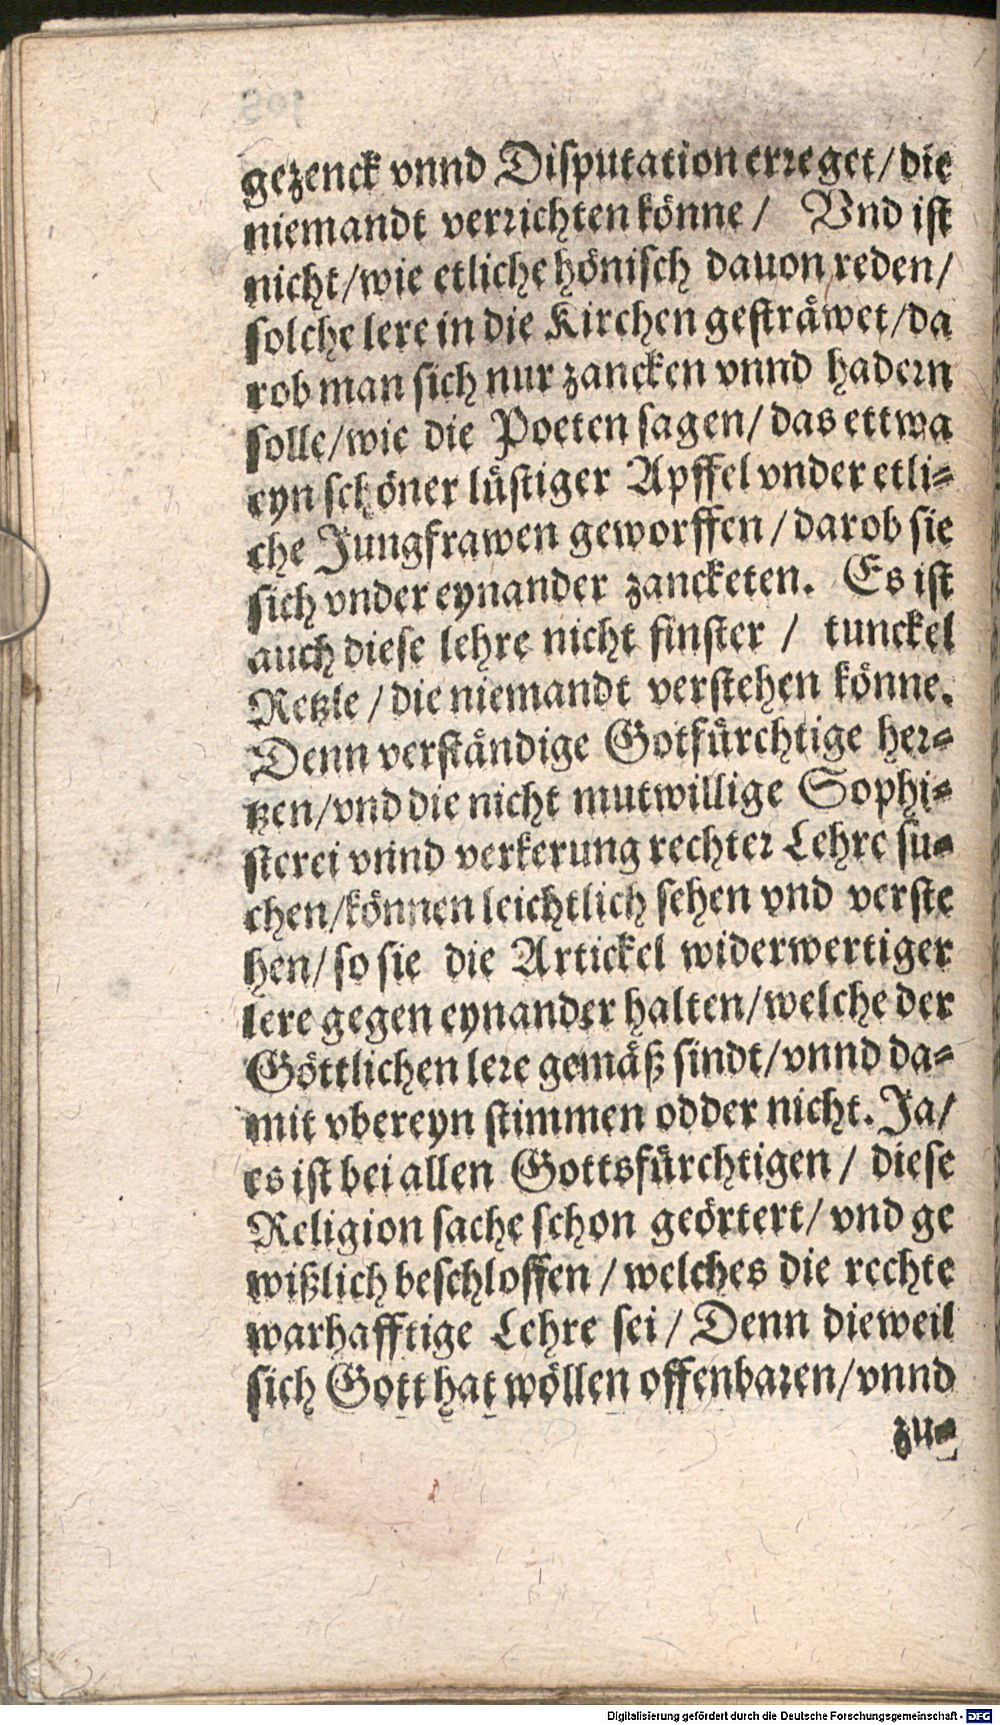 gezenck vnnd Disputation erreget/die
niemandt verrichten könne / Vnd ist
nicht/wie etliche hönisch dauon reden/
solche lere in die Kirchen gesträwet/da
rob man sich nur zancken vnnd hadern
solle/wie die Poeten sagen/das ettwa
eyn schöner lüstiger Apffel vnder etli-
che Jungfrawen geworffen/darob sie
sich vnder eynander zancketen. Es ist
auch diese lehre nicht finster / tunckel
Retzle/die niemandt verstehen könne.
Denn verständige Gotfürchtige her-
tzen/vnd die nicht mutwillige Sophi-
sterei vnnd verkerung rechter Lehre su-
chen/können leichtlich sehen vnd verste
hen/so sie die Artickel widerwertiger
lere gegen eynander halten/welche der
Göttlichen lere gemäß sindt/vnnd da-
mit vbereyn stimmen odder nicht. Ja/
es ist bei allen Gottsfürchtigen / diese
Religion sache schon geörtert/vnd ge
wißlich beschlossen / welches die rechte
warhafftige Lehre sei / Denn dieweil
sich Gott hat wöllen offenbaren/vnnd
zu-
Digitalisierung gefördert durch die Deutsche Forschungsgemeinschaft - DFG